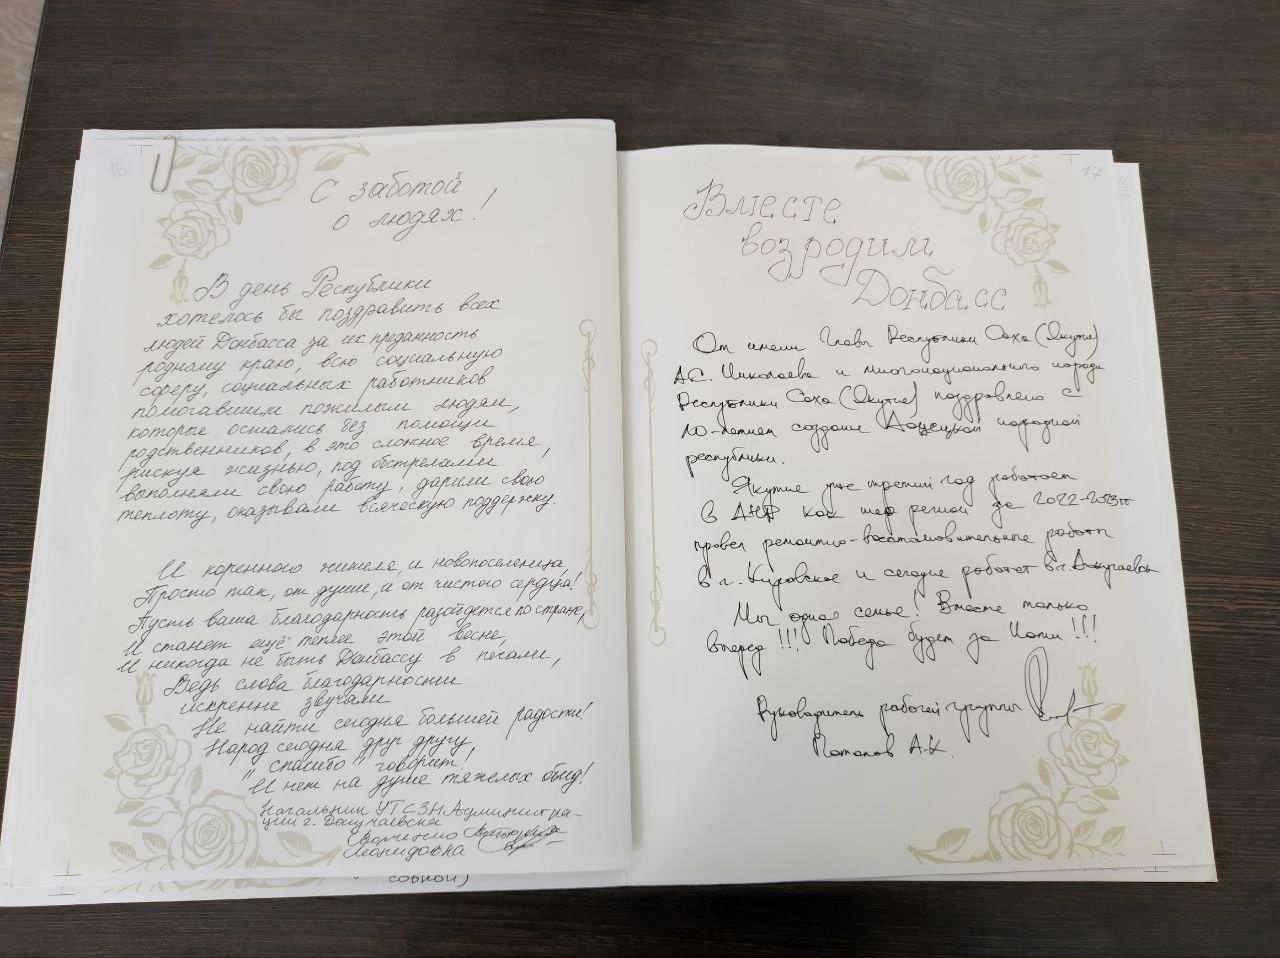 16
С заботой
о людях!
В день Республики
хотелось бы поздравить всех
людей Донбасса за их преданность
родному краю, всю социальную
сферу, социальных работников
помогавшим пожилым людям,
которые остались без помощи
родственников, в это сложное время,
рискуя жизнью, под обстрелами
выполняли свою работу, дарили свою
теплоту, оказывали всяческую поддержку.
И коренного жителя, и новопоселенца,
Просто так, от души, и от чистого сердца!
Пусть ваша благодарность разойдется по стране,
И станет ещё теплее этой весне,
И никогда не быть Донбассу в печали,
Ведь слова благодарности
искренне звучали
Не найти сегодня большей радости!
Народ сегодня друг другу,
"спасибо" говорит,
И нет на душе тяжелых обид!
Начальник УТСЗН Администра-
ции г. Докучаевска
Леонидовна
совкой)
17
19
Вместе
возродим
Донбасс
От имени Главы Республики Саха (Якутия)
А.С. Николаева и многонационального народа
Республики Саха (Якутия) поздравляю с
10-летием создания Донецкой народной
республики.
Якутия уже третий год работает
в ДНР как шеф регион за 2022-2023гг
провел ремонтно-восстановительные работы
в г. Кировское и сегодня работает в г. Докучаевск
Мы одна семья! Вместе только
вперед!!! Победа будет за Нами!!!
Руководитель рабочей группы
Потапов А.К.